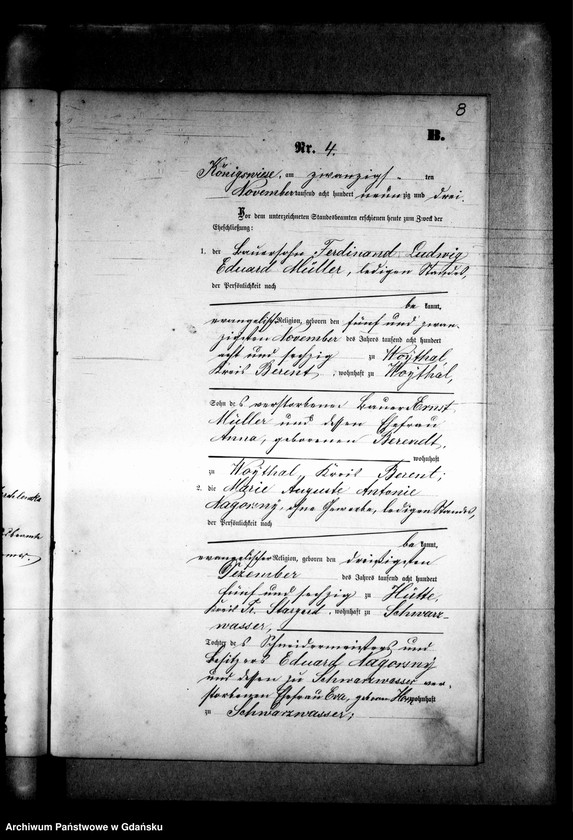 8
B.
Nr. 4.
Königswiese, am zwanzigs ten
November tausend acht hundert neunzig und drei.
Vor dem unterzeichneten Standesbeamten erschienen heute zum Zweck der
Eheschließung:
1. der Bauersohn Ferdinand Ludwig
Eduard Müller, ledigen Standes,
der Persönlichkeit nach
be kannt,
evangelischer Religion, geboren den fünf und zwan-
zigsten November des Jahres tausend acht hundert
acht und sechzig zu Woythal
Kreis Berent, wohnhaft zu Woythal,
Sohn des verstorbenen Bauer Ernst
Müller und dessen Ehefrau
Anna, geborenen Berendt,
wohnhaft
zu Woythal, Kreis Berent;
2. die Marie Auguste Antonie
Nagorny, ohne Gewerbe, ledigen Standes,
der Persönlichkeit nach
be kannt,
evangelischer Religion, geboren den dreißigsten
Dezember des Jahres tausend acht hundert
fünf und sechzig zu Hütte,
Kreis Pr. Stargard, wohnhaft zu Schwarz-
wasser,
Tochter des Schneidermeisters und
Besitzers Eduard Nagorny
und dessen zu Schwarzwasser ver-
storbenen Ehefrau Eva, geboren wohnhaft
zu Schwarzwasser;
Archiwum Państwowe w Gdańsku